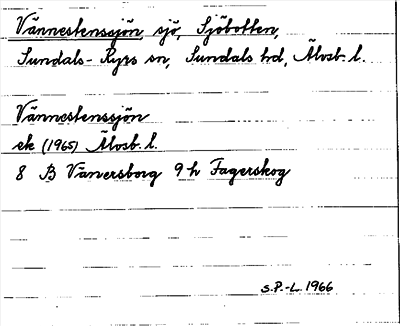 Vännestenssjön, sjö, Sjöbotten,
Sundals-Ryrs sn, Sundals hd, Älvsb. l.
Vännestenssjön
ek (1965) Älvsb. l.
8 B Vänersborg 9 h Fagerskog
S.P.-L. 1966